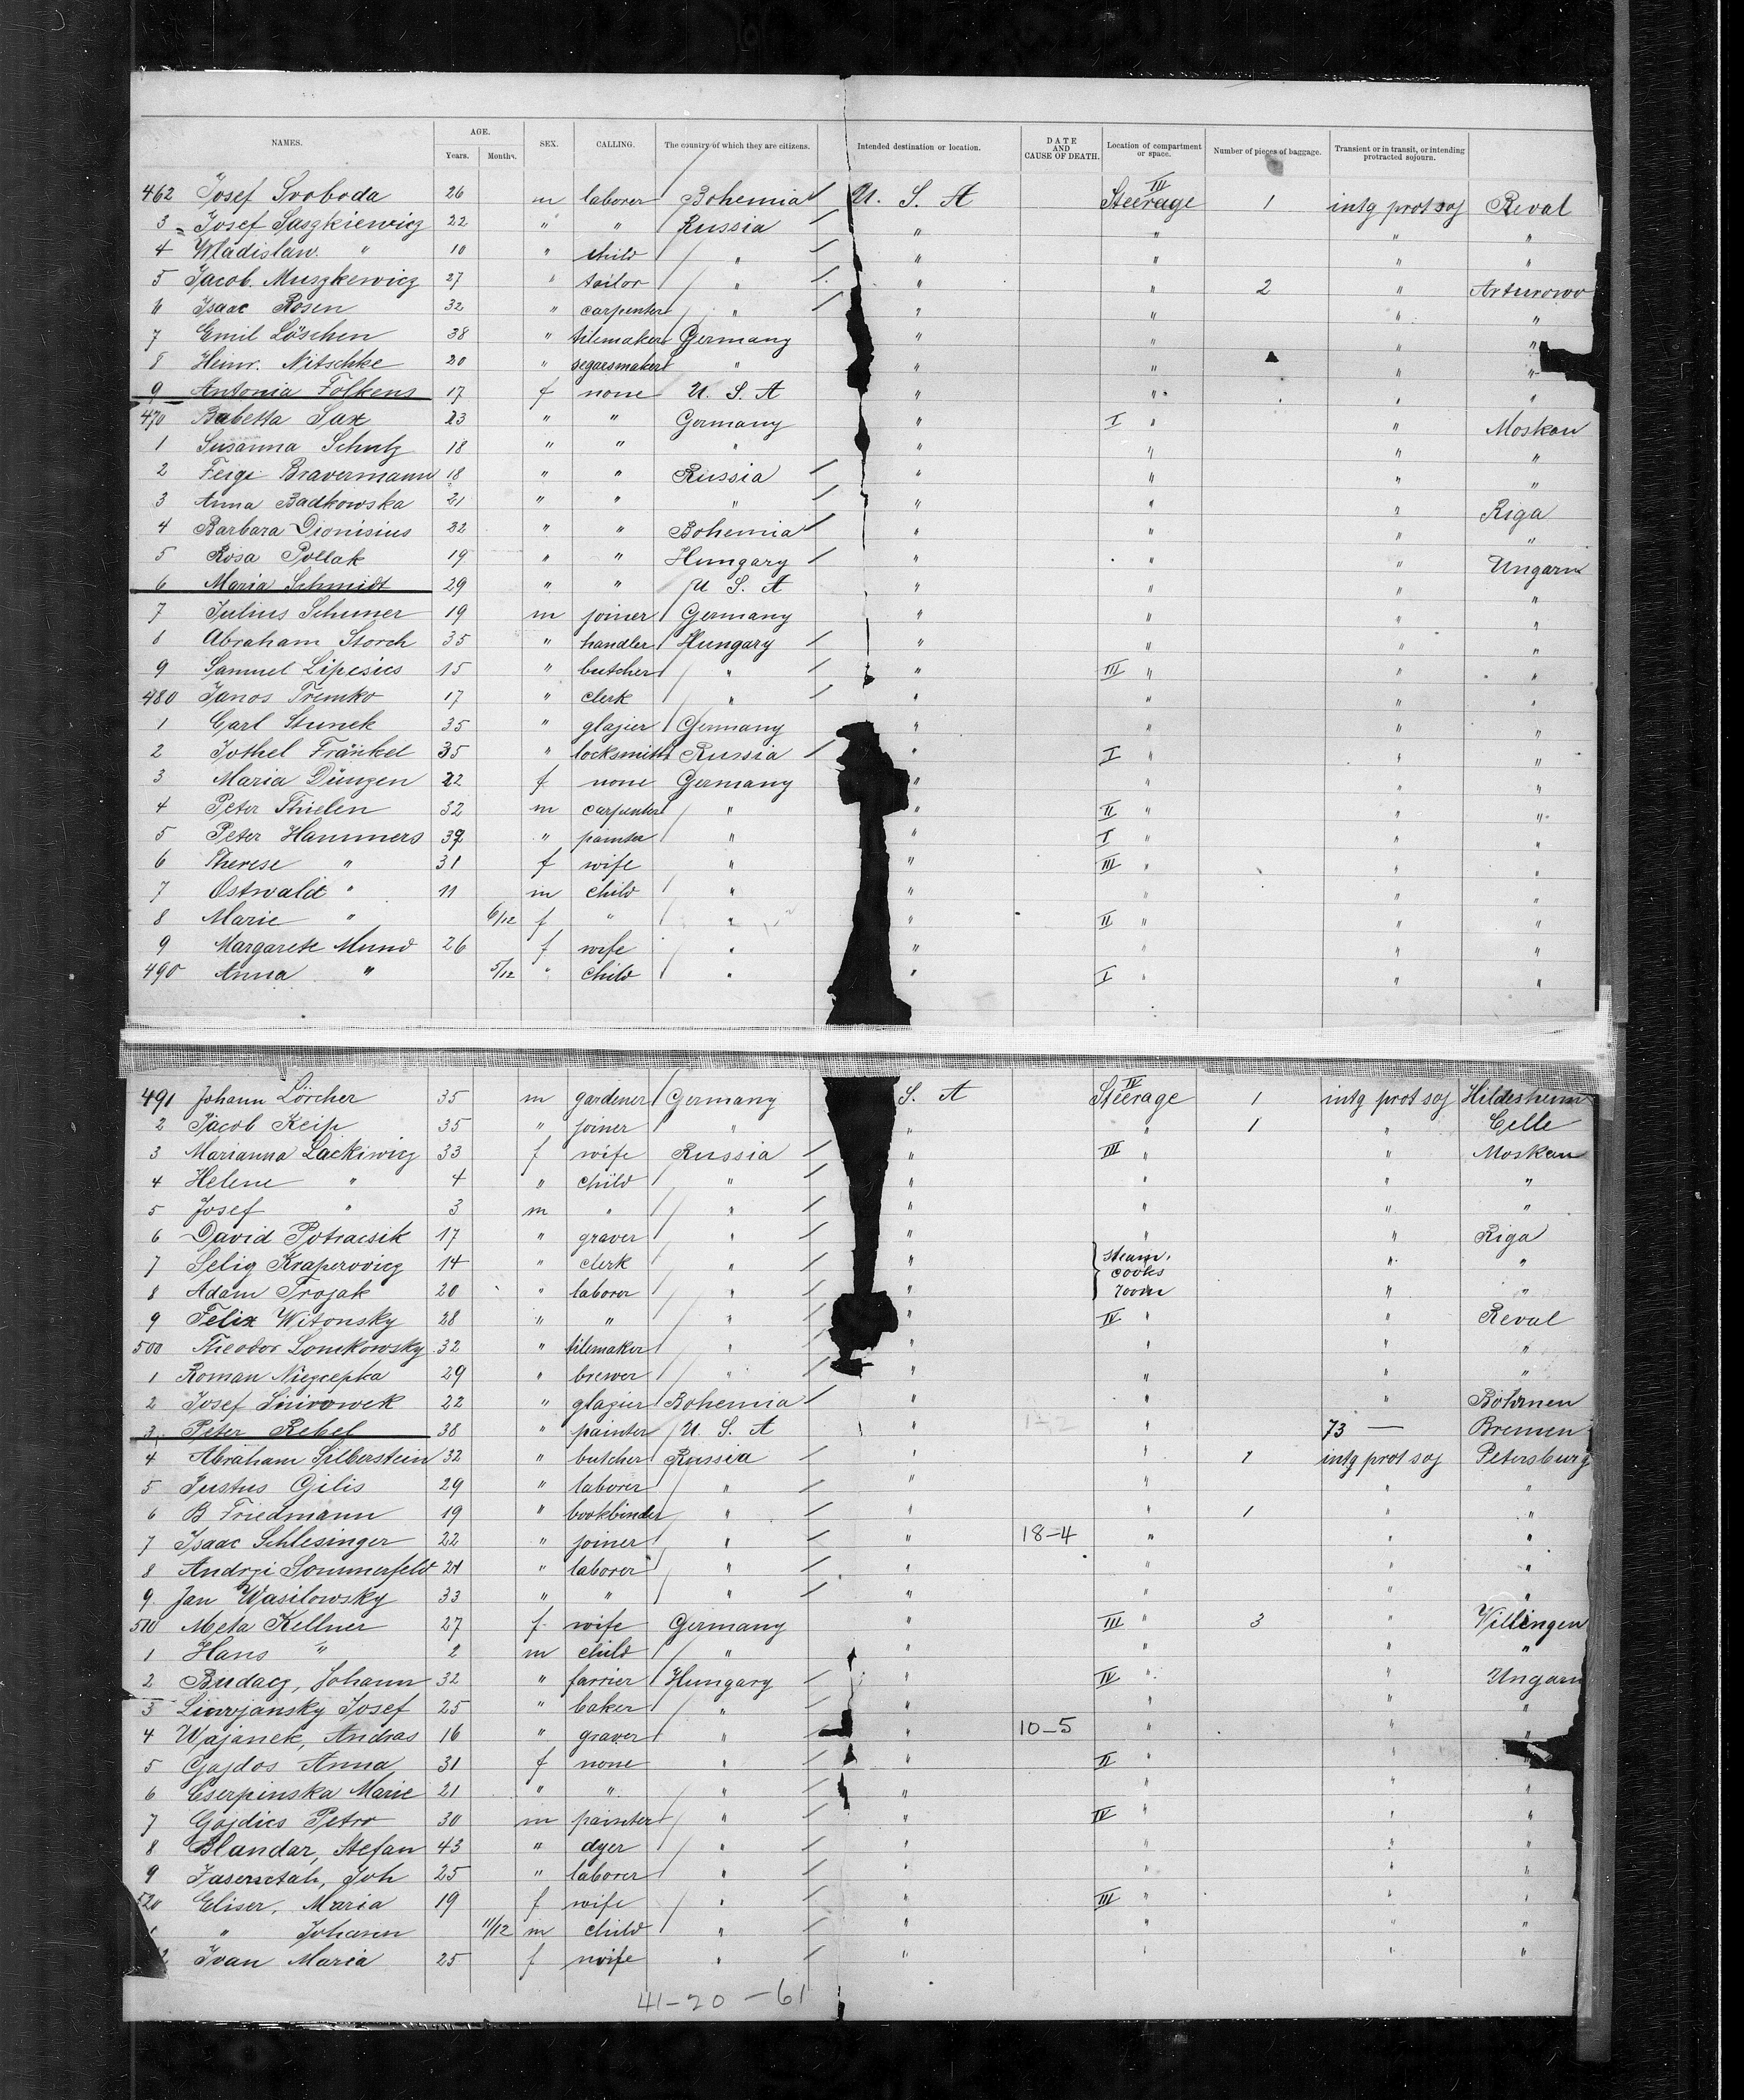 NAMES. AGE. SEX. CALLING. The country of which they are citizens. Intended destination or location. DATE AND CAUSE OF DEATH. Location of compartment or space. Number of pieces of baggage. Transient or in transit, or intending protracted sojourn.
Years. Months.
462 Josef Svoboda 26 m laborer Bohemia U. S. A Steerage III 1 intg prot soj Reval
3 Josef Saszkiewicz 22 " " Russia " " " "
4 Wladislaw " 10 " child " " " " "
5 Jacob Muszkewicz 27 " tailor " " " 2 " Arturowo
6 Isaac Rosen 32 " carpenter " " " " "
7 Emil Löschen 38 " tilemaker Germany " " " "
8 Heinr. Nitschke 20 " segarsmaker " " " " "
9 Antonia Folkens 17 f none U. S. A " " " "
470 Babetta Sax 23 " " Germany " I " " Moskau
1 Susanna Schulz 18 " " " " " " "
2 Feige Bravermann 18 " " Russia " " " "
3 Anna Badkowska 21 " " " " " " Riga
4 Barbara Dionisius 32 " " Bohemia " " " "
5 Rosa Pollak 19 " " Hungary " " " Ungarn
6 Maria Schmidt 29 " " U. S. A " " " "
7 Julius Schuner 19 m joiner Germany " " " "
8 Abraham Storch 35 " handler Hungary " " " "
9 Samuel Lipesics 15 " butcher " " III " " "
480 Janos Tremko 17 " clerk " " " " "
1 Carl Stunek 35 " glazier Germany " " " "
2 Jothel Fränkel 35 " locksmith Russia " I " " "
3 Maria Düngen 22 f none Germany " " " "
4 Peter Thielen 32 m carpenter " " II " " "
5 Peter Hammers 39 " painter " " I " " "
6 Therese " 31 f wife " " III " " "
7 Ostwald " 11 m child " " " " "
8 Marie " 6/12 f " " " II " " "
9 Margarete Mund 26 f wife " " " " "
490 Anna " 5/12 " child " " I " " "
491 Johann Lörcher 35 m gardener Germany S. A Steerage IV 1 intg prot soj Hildesheim
2 Jacob Keip 35 " joiner " " " 1 " Celle
3 Marianna Lackiwicz 33 f wife Russia " III " " Moskau
4 Helene " 4 " child " " " " "
5 Josef " 3 m " " " " " "
6 David Potracsik 17 " graver " " " " Riga
7 Selig Kraperovicz 14 " clerk " " steam. cooks room " "
8 Adam Trojak 20 " laborer " " " "
9 Felix Witonsky 28 " " " " IV " " Reval
500 Theodor Lomkowsky 32 " tilemaker " " " " "
1 Roman Niezcepka 29 " brewer " " " " "
2 Josef 22 " glazier Bohemia " " " Böhmen
3 Peter Rebel 38 " painter U. S. A " " 73 — Bremen
4 Abraham Silberstein 32 " butcher Russia " " 1 intg prot soj Petersburg
5 Justus Gilis 29 " laborer " " " " "
6 B Friedmann 19 " bookbinder " " " 1 " "
7 Isaac Schlesinger 22 " joiner " " 18-4 " " "
8 Andrzi Sommerfeld 21 " laborer " " " " "
9 Jan Wasilowsky 33 " " " " " " "
510 Meta Kellner 27 f wife Germany " III " 3 " Villingen
1 Hans " 2 m child " " " " "
2 Budacz, Johann 32 " farrier Hungary " IV " " Ungarn
3 Josef 25 " baker " " " " "
4 Wajanek, Andras 16 " graver " " 10-5 " " "
5 Gajdos Anna 31 f none " " II " " "
6 Cserpinska Marie 21 " " " " " " "
7 Gajdics Petro 30 m painter " " IV " " "
8 Blandar, Stefan 43 " dyer " " " " "
9 Joh 25 " laborer " " " " "
520 Eliser, Maria 19 f wife " " III " " "
" Johann 11/12 m child " " " " "
2 Ivan Maria 25 f wife " " " " "
41-20-61